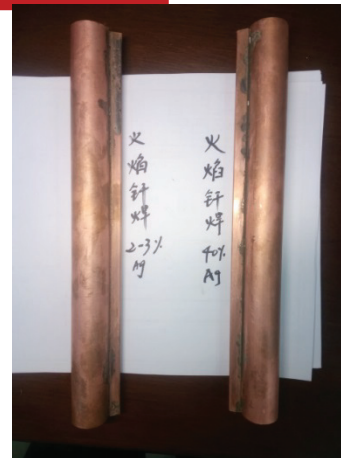 火焰钎焊 2-3% Ag
火焰钎焊 40% Ag